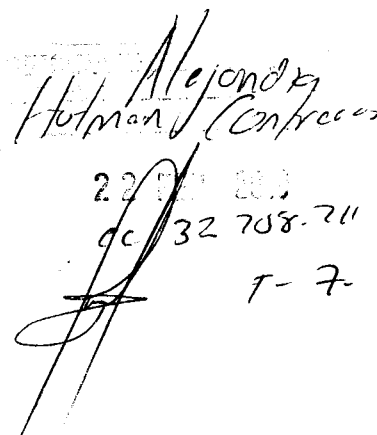 Alejandra
Hofman Contreras
22
cc 32 708.711
T-7.